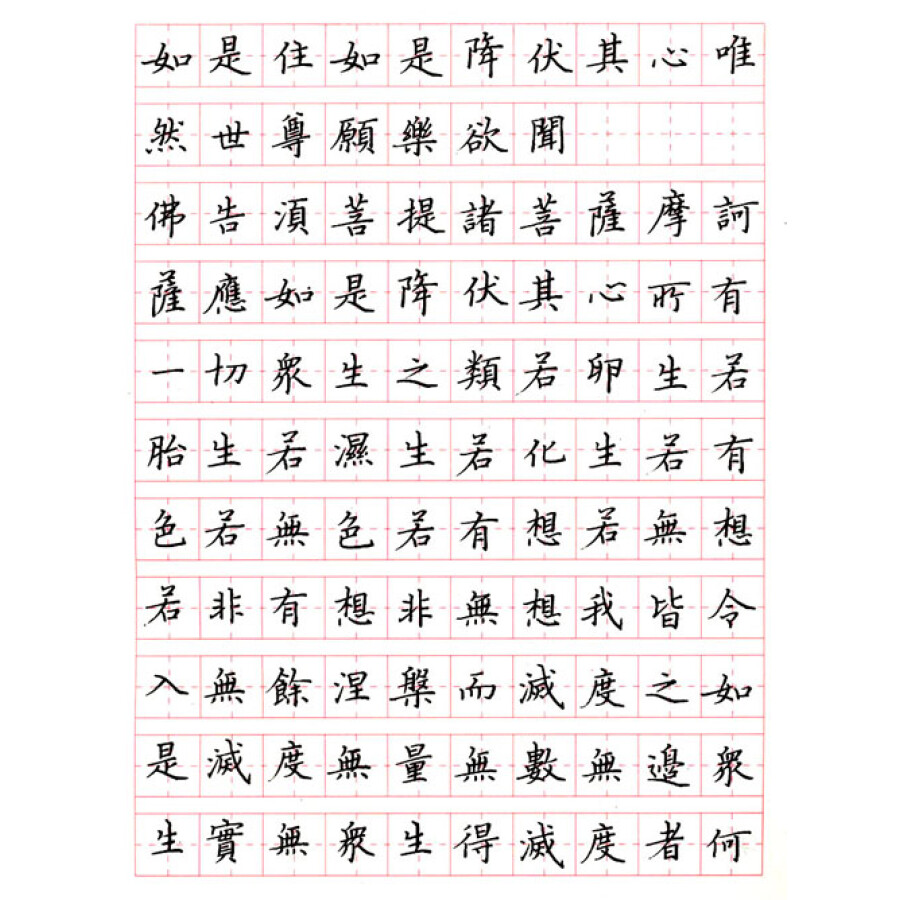 如是住如是降伏其心唯
然世尊願樂欲聞
佛告須菩提諸菩薩摩訶
薩應如是降伏其心所有
一切眾生之類若卵生若
胎生若濕生若化生若有
色若無色若有想若無想
若非有想非無想我皆令
入無餘涅槃而滅度之如
是滅度無量無數無邊眾
生實無眾生得滅度者何